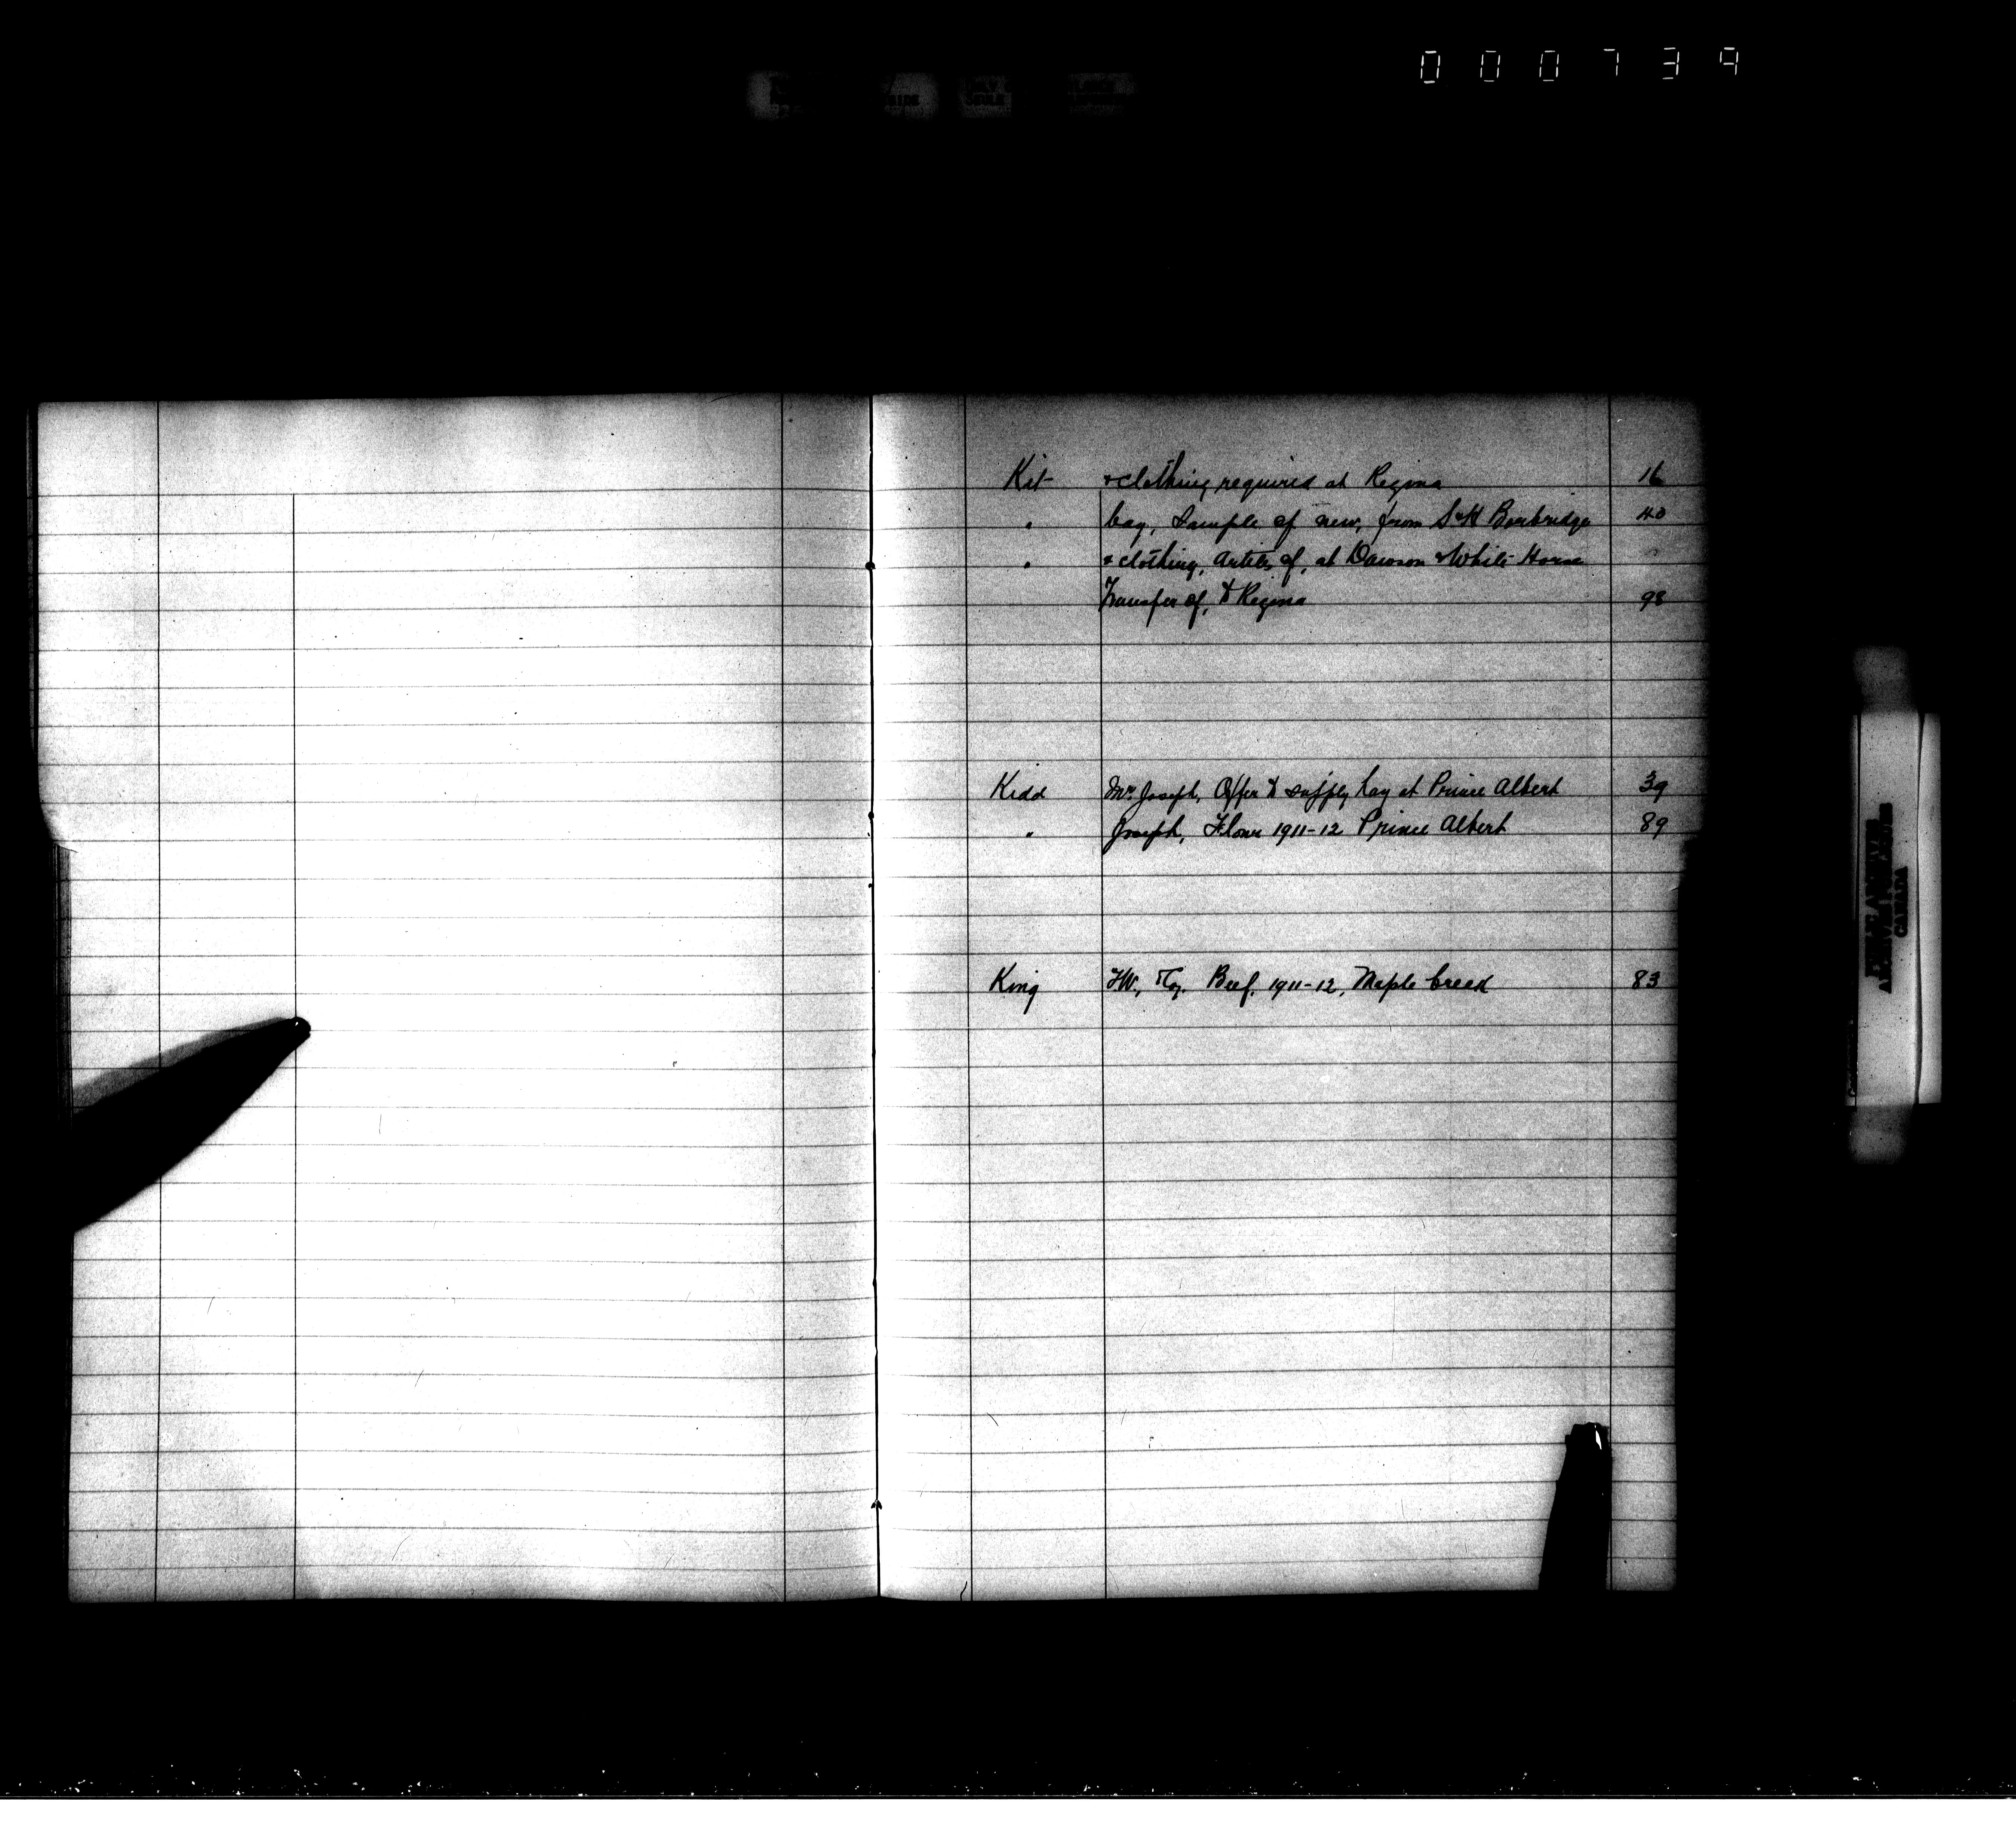 000739
Kit & clothing required at Regina 16
" bag, Sample of new, from S & H Borbridge 40
" & clothing, Articles of, at Dawson & White Horse
Transfer of, to Regina 98
Kidd Mr. Joseph, Offer to supply hay at Prince Albert 39
" Joseph, Flour 1911-12 Prince Albert 89
King Beef, 1911-12, Maple Creek 83
PUBLIC ARCHIVES
ARCHIVES PUBLIQUES
CANADA